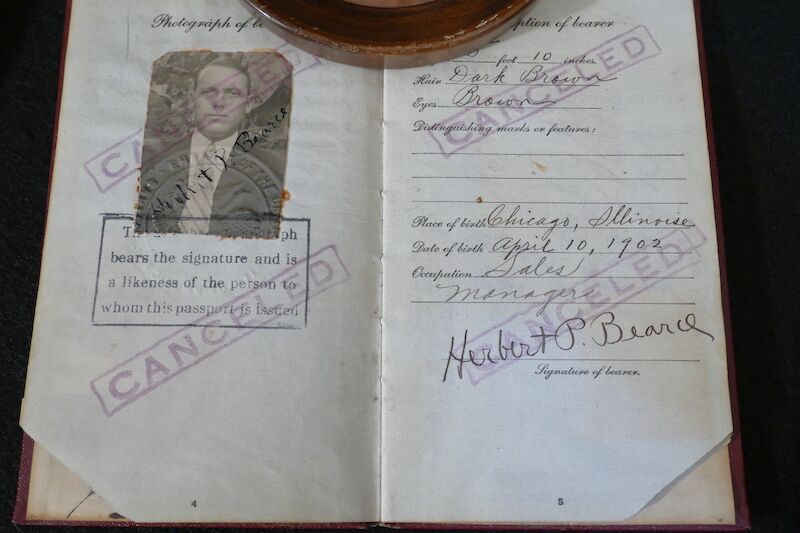 Photograph of
CANCELED
Herbert P. Bearce
bears the signature and is
a likeness of the person to
whom this passport is issued
CANCELED
4
of bearer
5 feet 10 inches.
Hair Dark Brown
CANCELED
Eyes Brown
Distinguishing marks or features:
Place of birth Chicago, Illinoise
Date of birth April 10, 1902
Occupation Sales
Manager
CANCELED
Herbert P. Bearce
Signature of bearer.
5